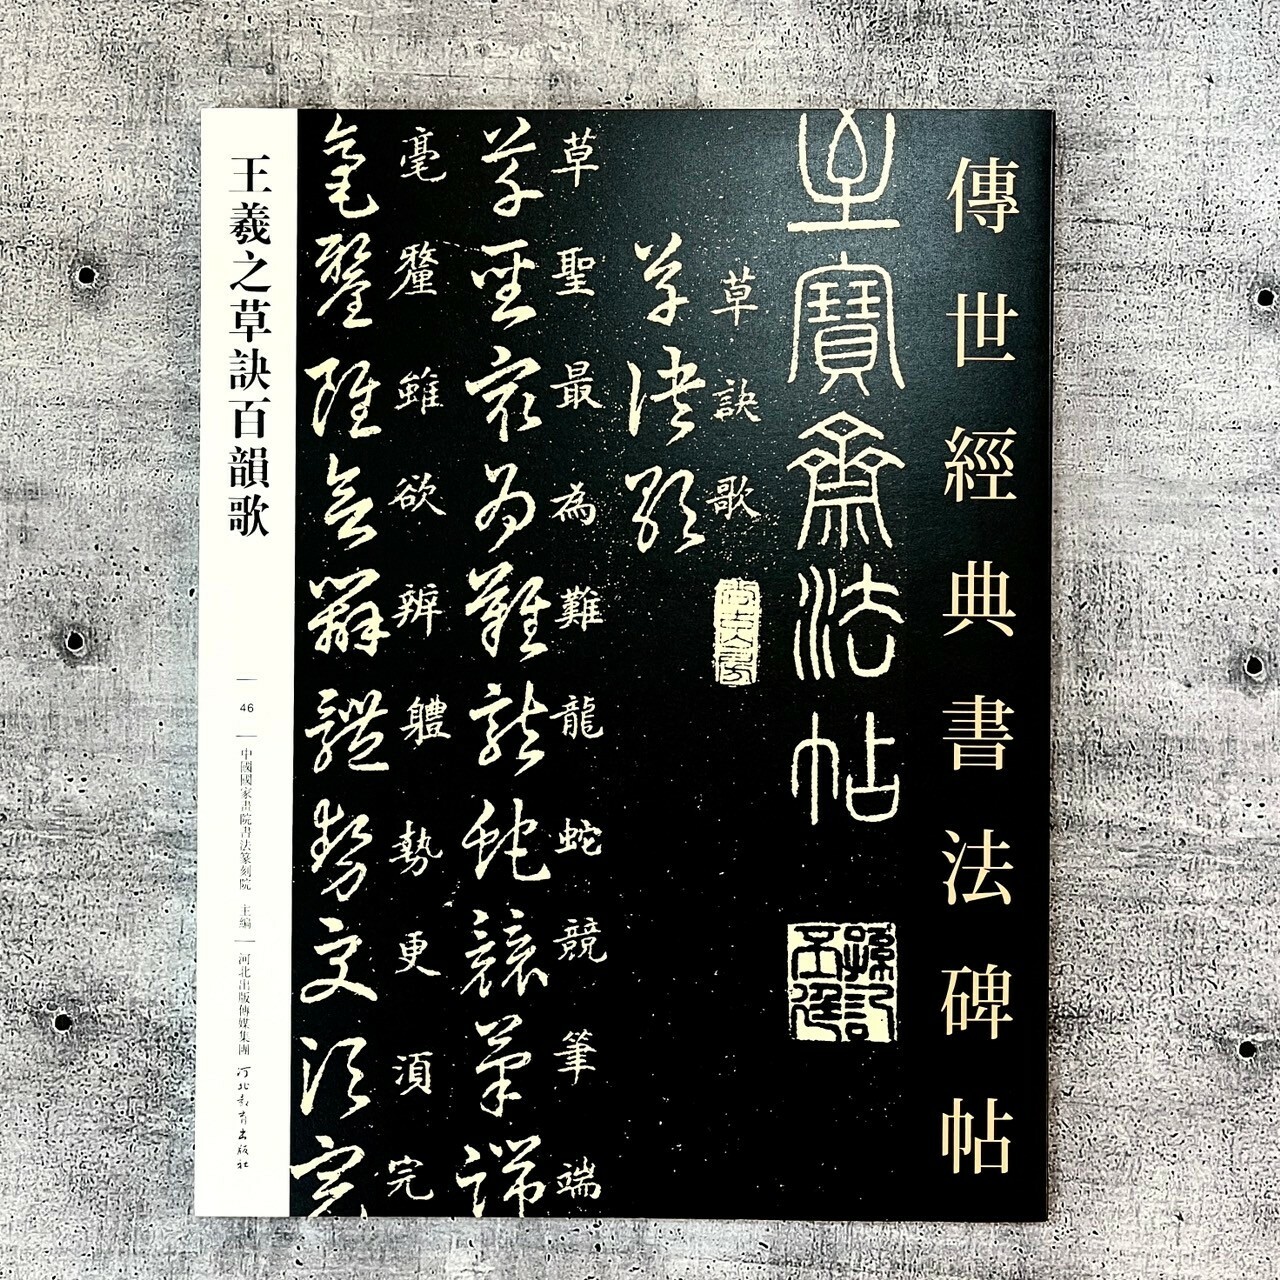 傳世經典書法碑帖
至寶齋法帖
草訣歌
草訣歌
草聖最為難龍蛇競筆端
草聖最為難龍蛇競筆端
毫釐雖欲辨體勢更須完
毫釐雖欲辨體勢更須完
王羲之草訣百韻歌
46
中國國家畫院書法篆刻院 主編
河北出版傳媒集團
河北教育出版社